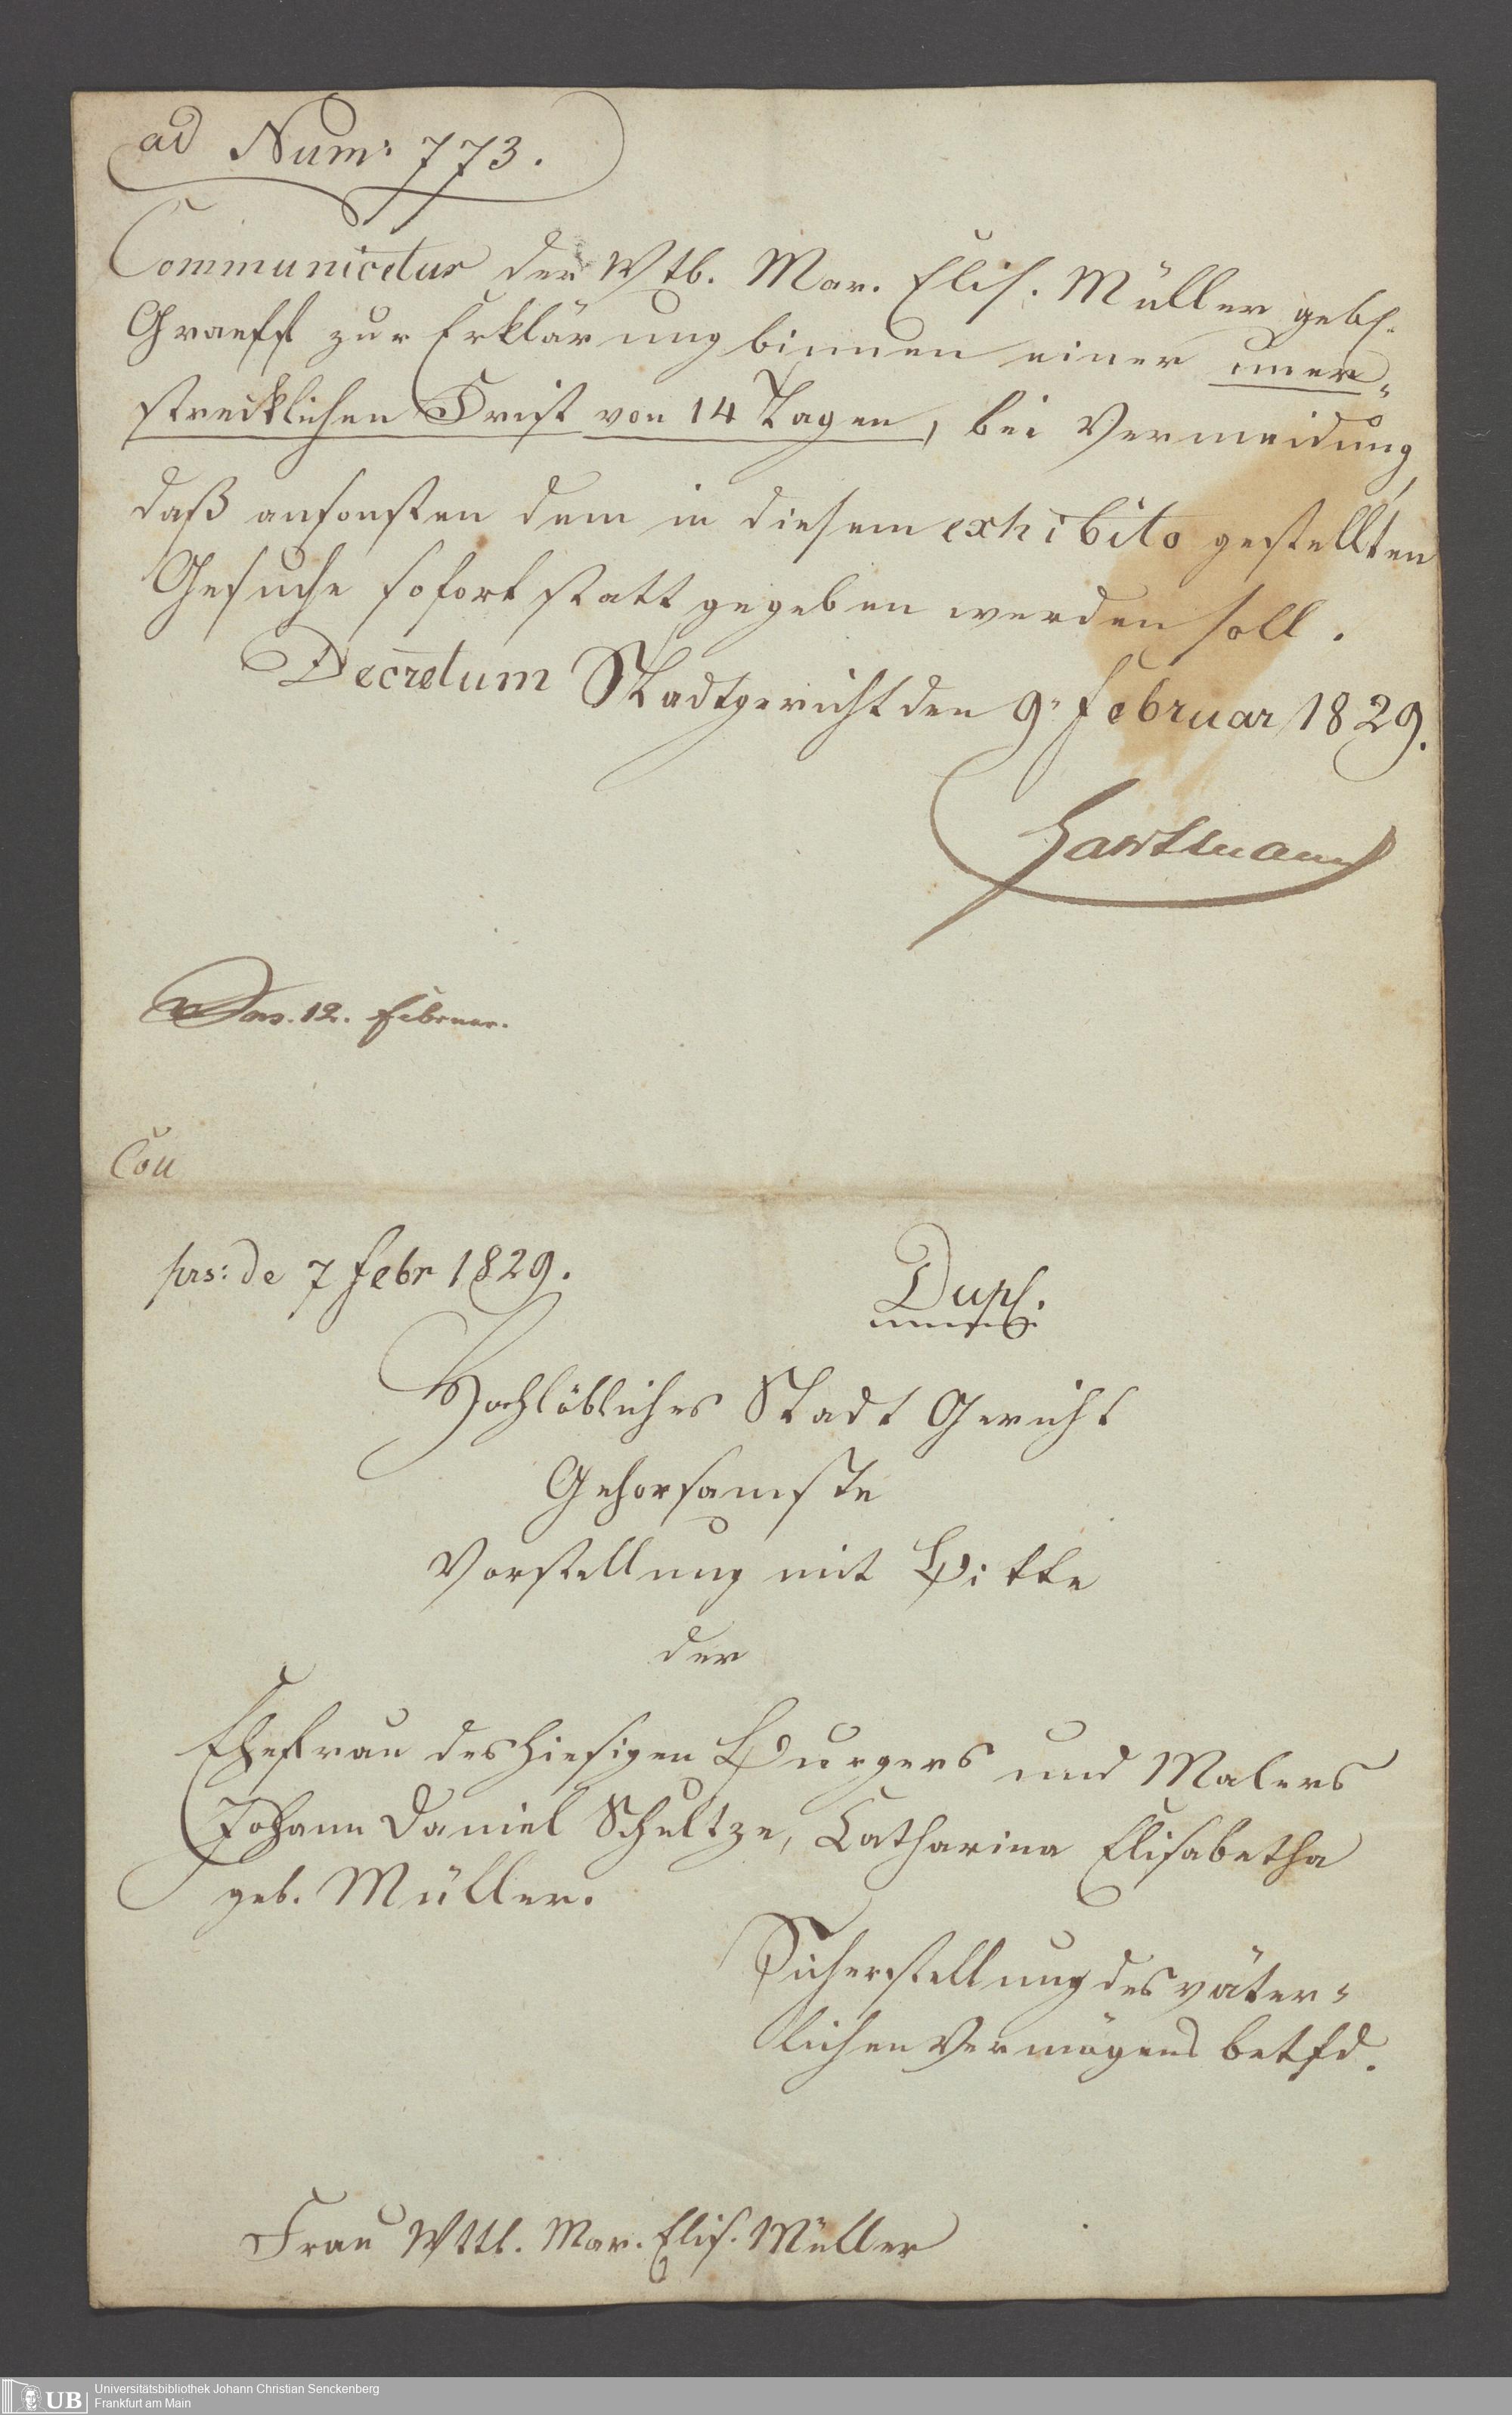 ad Num: 773.
Communicetur der Wtb. Mar. Elis. Müller gebh.
Graeff zur Erklärung binnen einer uner-
strecklichen Frist von 14 Tagen, bei Vermeidung,
daß ansonsten dem in diesem exhibito gestellten
Gesuche sofort statt gegeben werden soll.
Decretum Stadtgericht den 9. Februar 1829.
Hartmann
12. Februar.
Cou
prs: de 7 Febr 1829.
Dupl.
Hochlöbliches Stadt Gericht
Gehorsamste
Vorstellung mit Bitte
der
Ehefrau des hiesigen Burgers und Malers
Johann Daniel Schultze, Catharina Elisabetha
geb. Müller.
Sicherstellung des väter-
lichen Vermögens betfd.
Frau Wttl. Mar. Elis. Müller
UB
Universitätsbibliothek Johann Christian Senckenberg
Frankfurt am Main